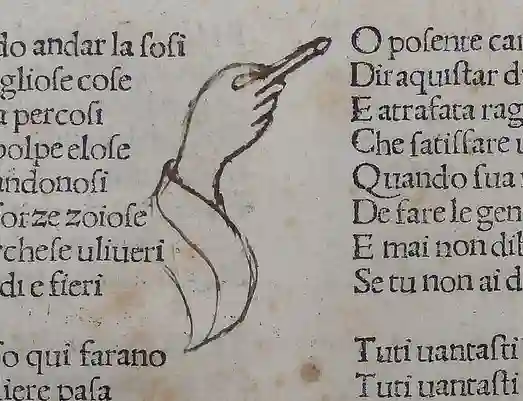 do andar la ſoſi
glioſe coſe
a percoſi
polpe eloſe
andonoſi
forze zoioſe
rcheſe uliueri
di e fieri
ſo qui farano
liere paſa
O poſente
Dir aquiſtar d
E atrafata rag
Che ſatiſfare u
Quando ſua
De fare le gen
E mai non dib
Se tu non ai d
Tuti uantaſti
Tuti uantaſti